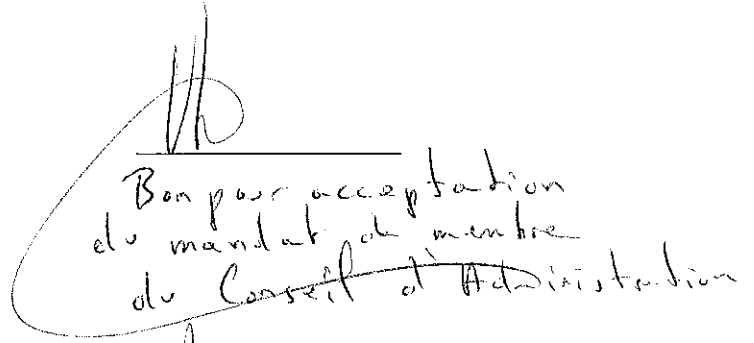 Bon pour acceptation
du mandat de membre
du Conseil d'Administration